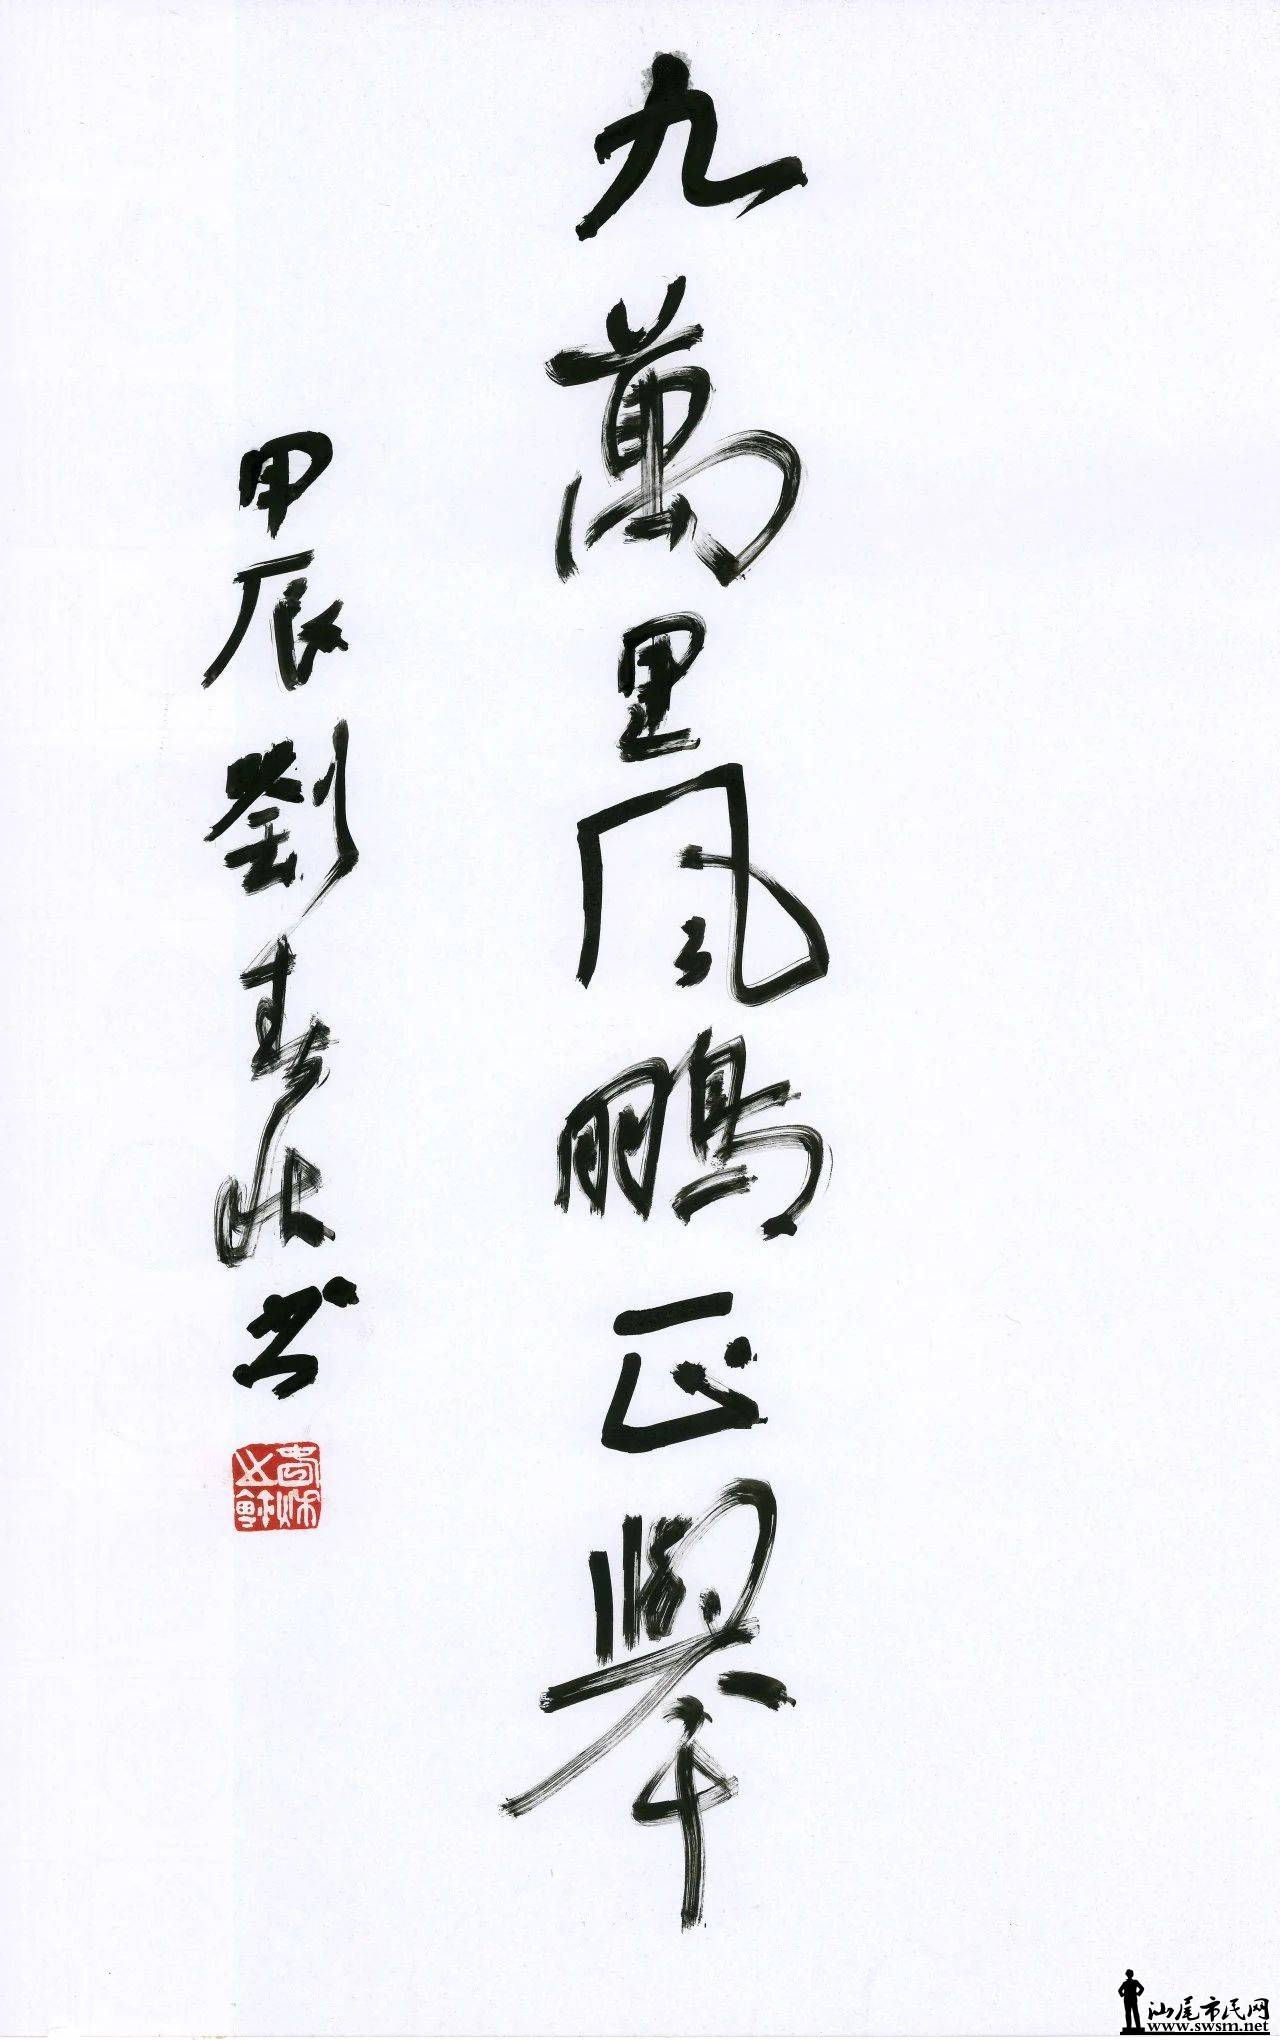 九萬里風鵬正舉
甲辰劉春书
汕尾市民网
www.swsm.net